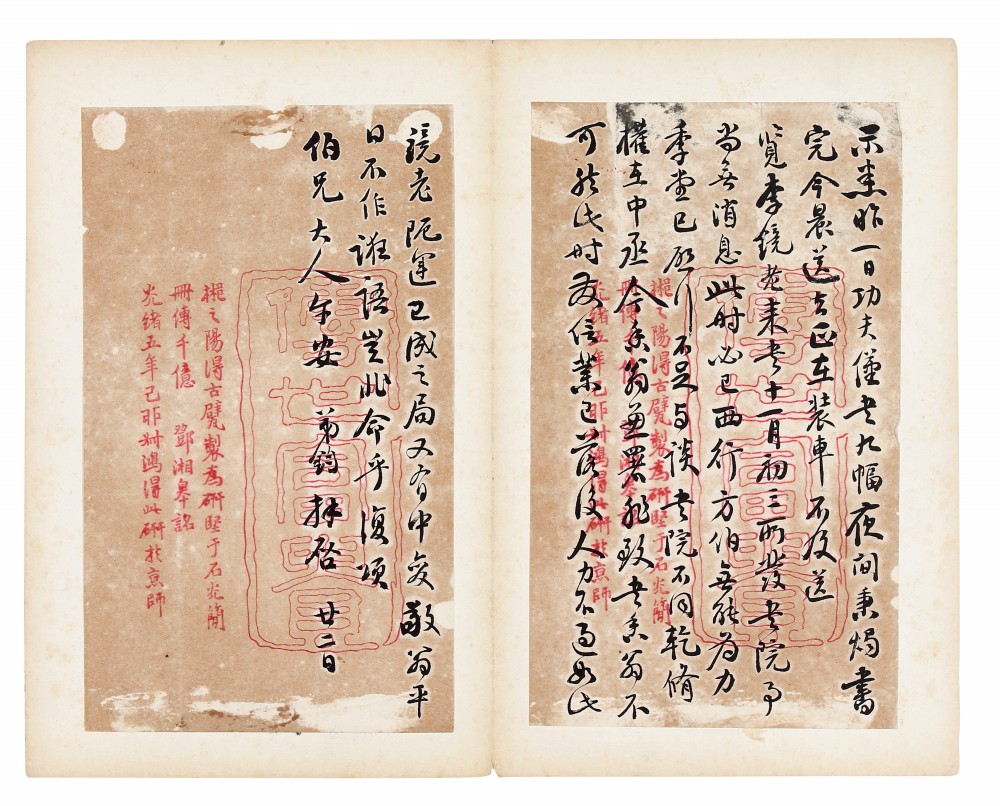 示悉昨一日功夫僅書九幅夜間秉燭書
完今晨送去正在裝車不及送
覽李鏡老來書十一月初三所發書院事
尚無消息此時必已西行方伯無能為力
季堂已啟行不足与談書院不同乾脩
權在中丞今香翁兼署非致書香翁不
可然此時友信業已落後人力不過如此
鏡老阨運已成之局又有中變敬翁平
日不作誑語豈非命乎復頌
伯兄大人午安 弟鈞拜啓 廿二日
湘之陽得古甓製為硏堅于石光簡
冊傳千億 鄧湘皋銘
光緒五年己卯尌鴻得此硏於京師